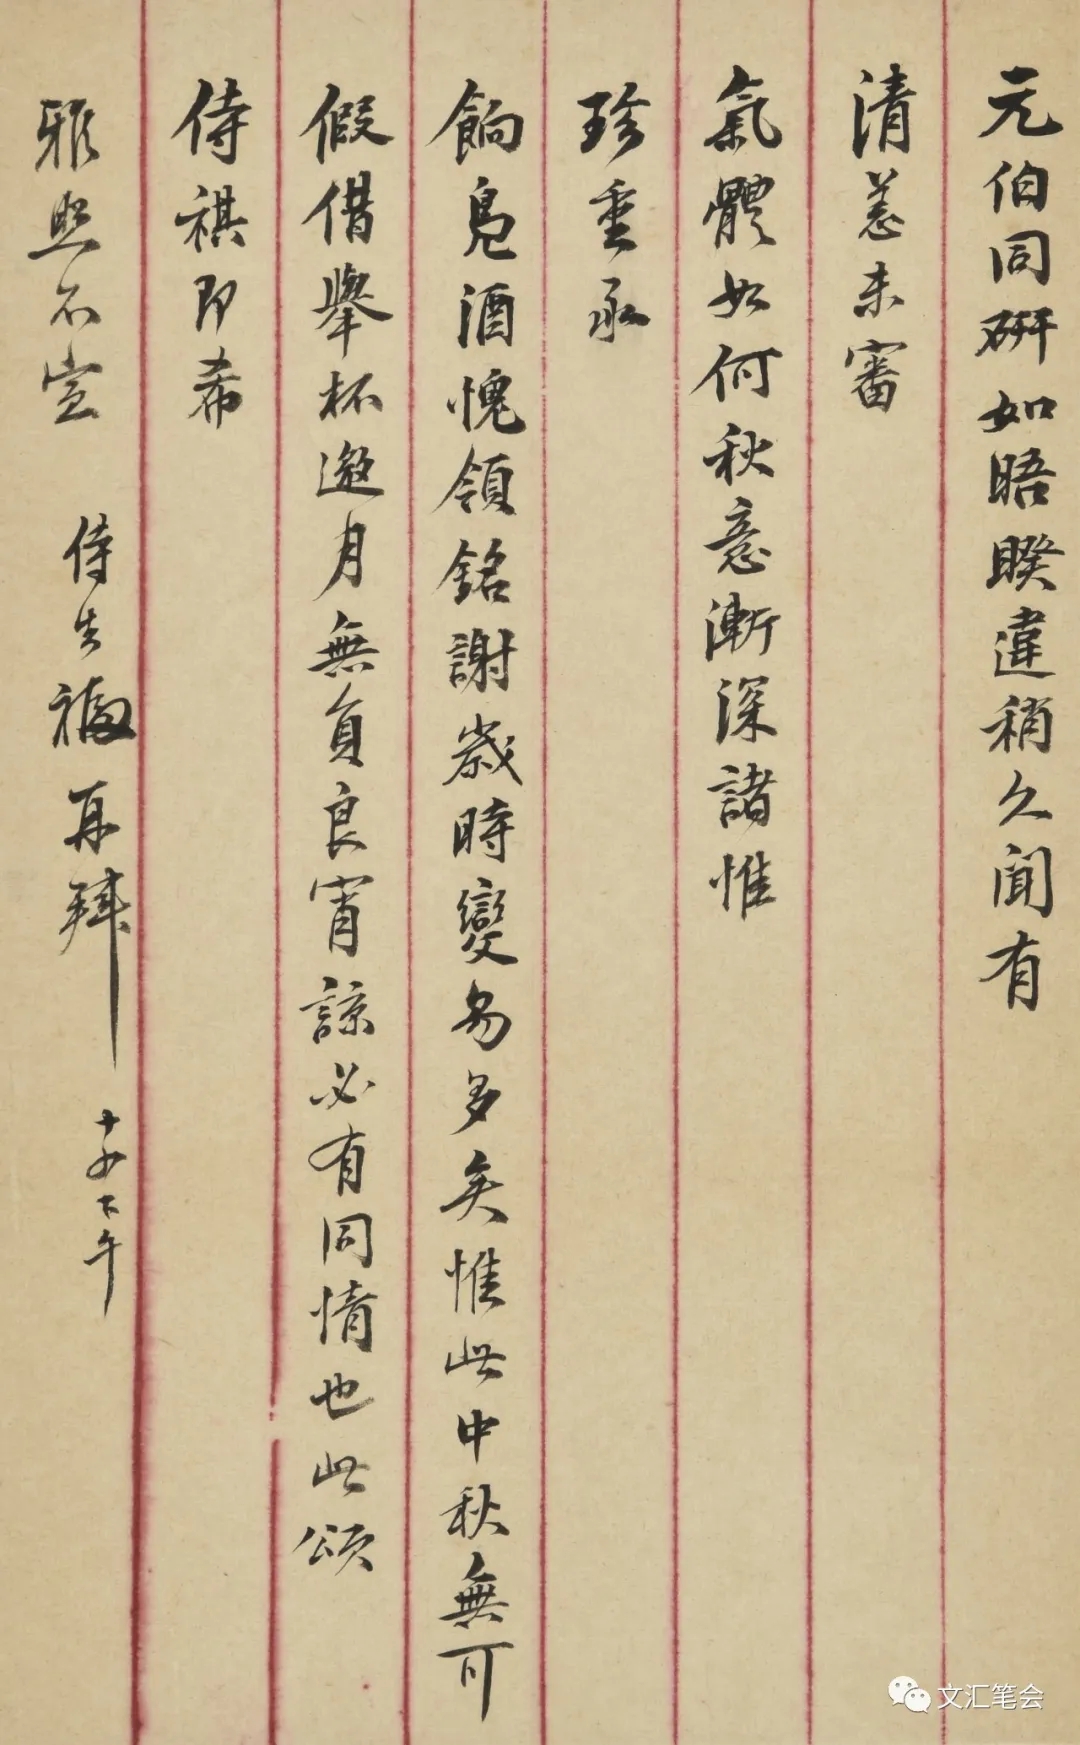 元伯同硏如晤睽違稍久聞有
清恙未審
氣體如何秋意漸深諸惟
珍重承
餉鳧酒愧領銘謝歲時變易多矣惟此中秋無可
假借舉杯邀月無負良宵諒必有同情也此頌
侍祺即希
雅照不宣 侍生 再拜 十四下午
文汇笔会